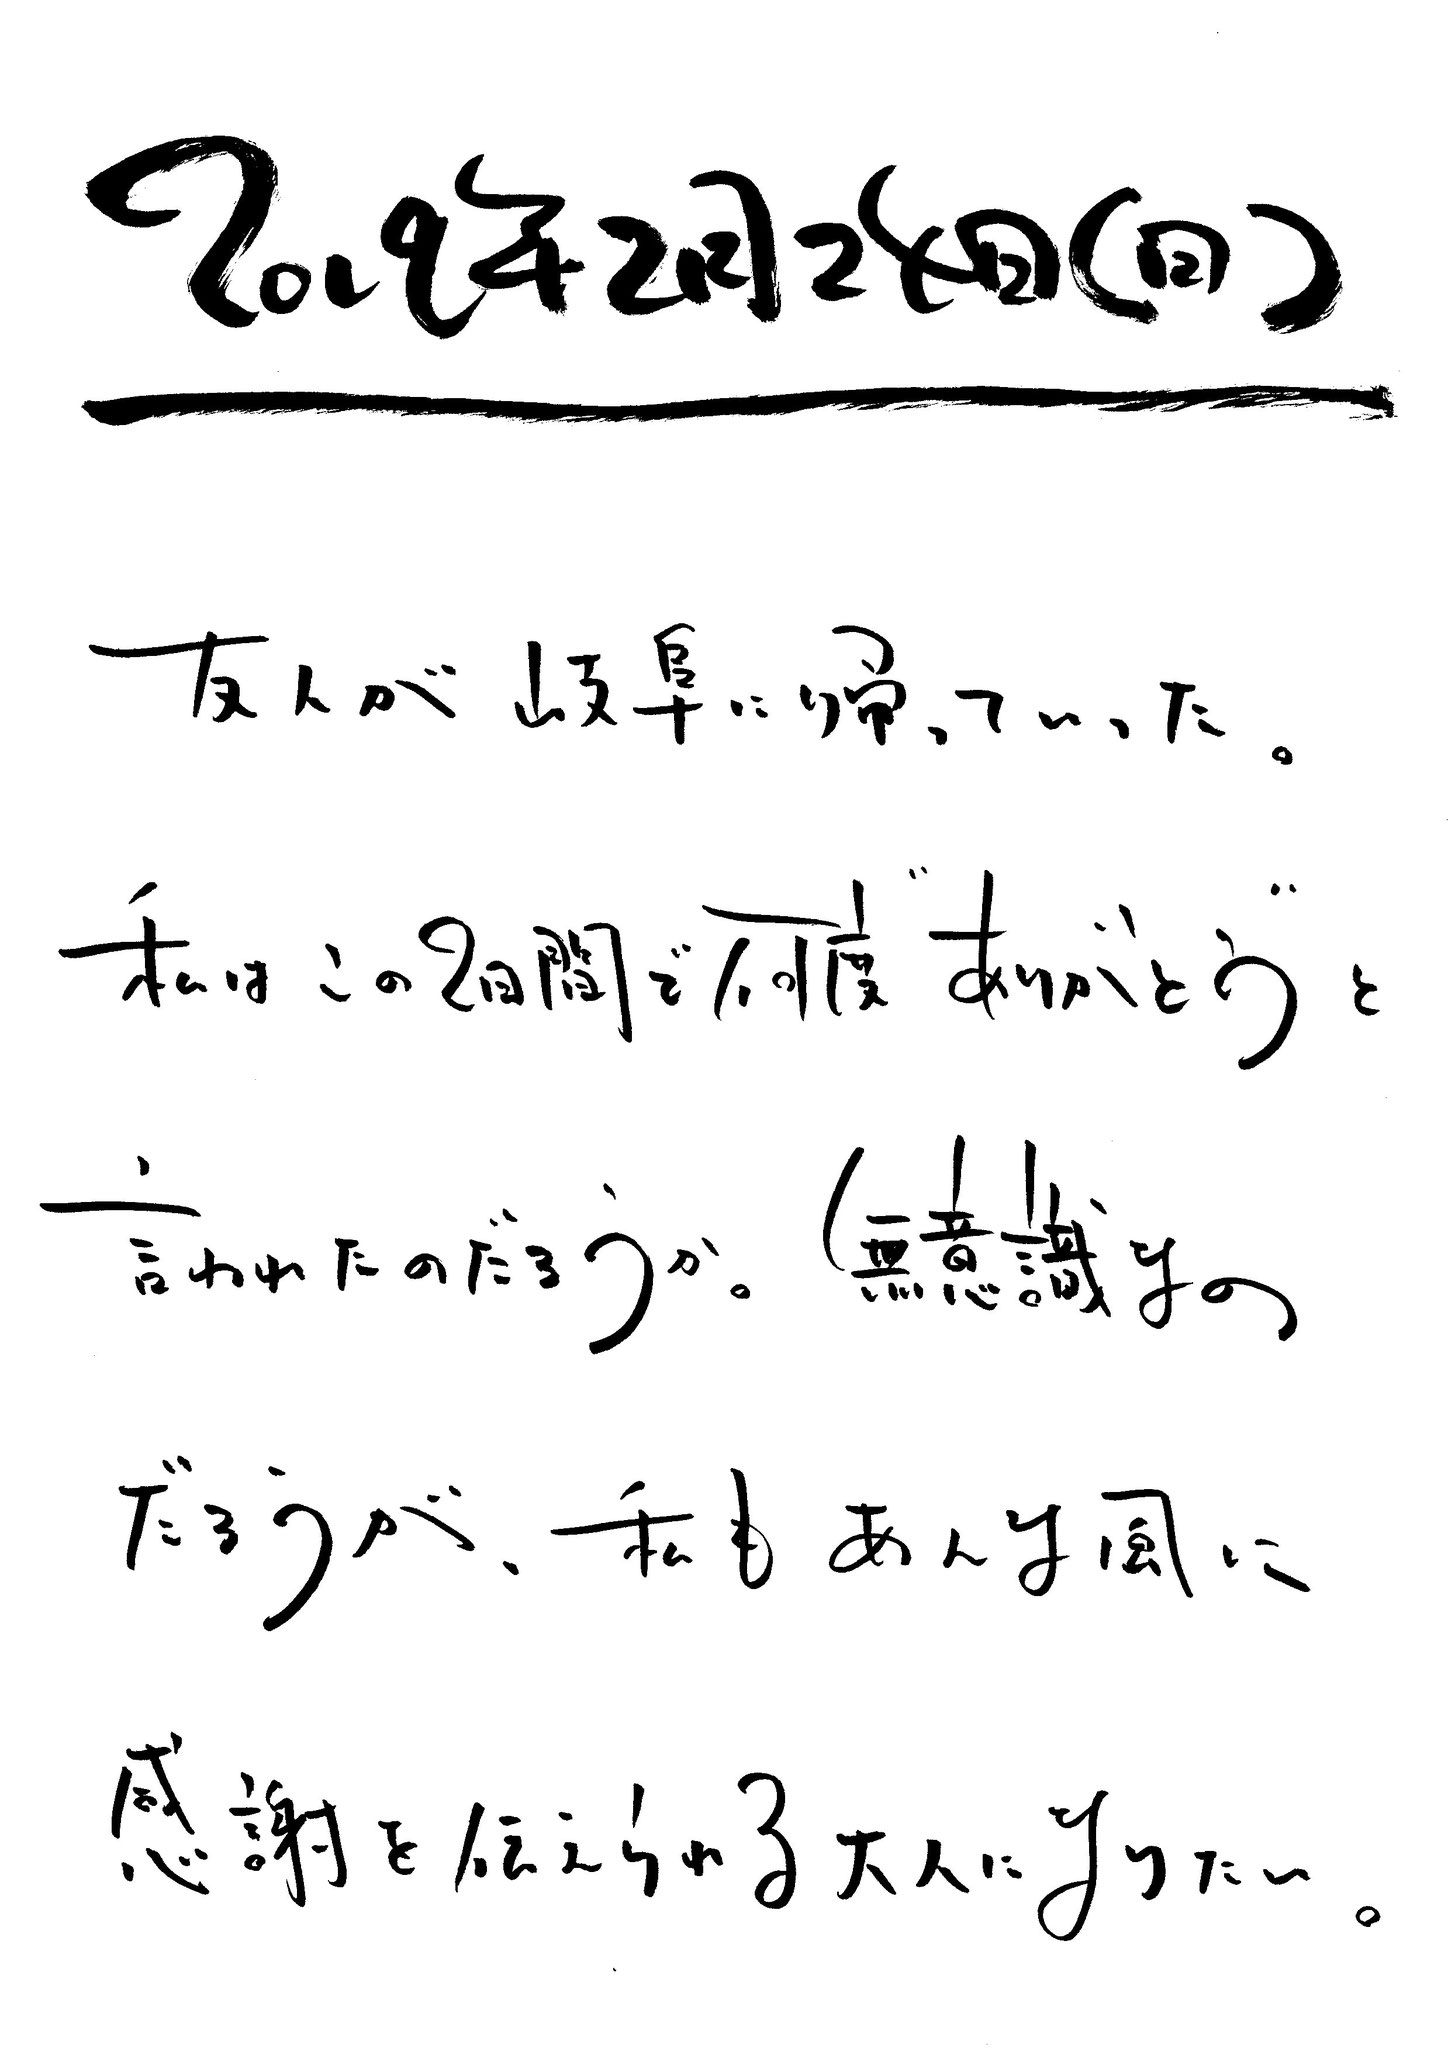 2019年2月24日(日)
友人が岐阜に帰っていった。
私はこの2日間で何度"ありがとう"と
言われたのだろうか。(無意識なの
だろうが、私もあんな風に
感謝を伝えられる大人になりたい。